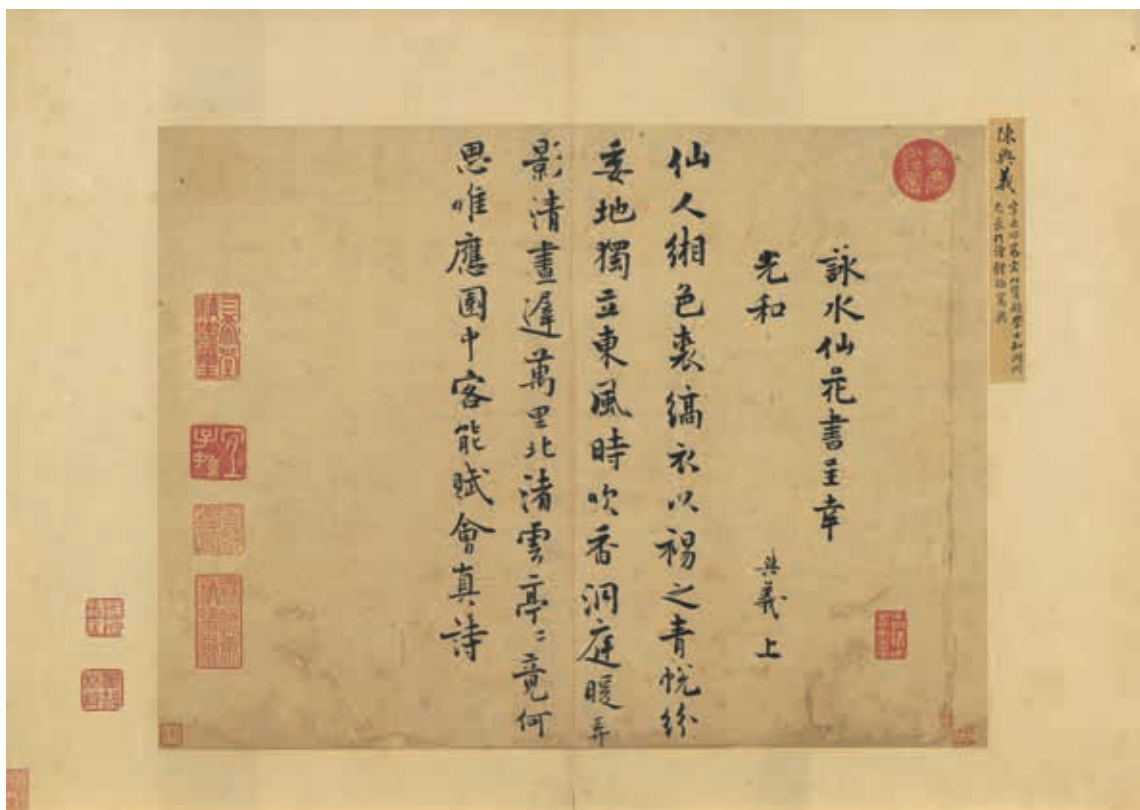 陳與義
詠水仙花書呈幸
光和 與義上
仙人緗色裘縞衣以裼之青帨紛
委地獨立東風時吹香洞庭暖弄
影清晝遲萬里北渚雲亭〻竟何
思唯應園中客能賦會真詩